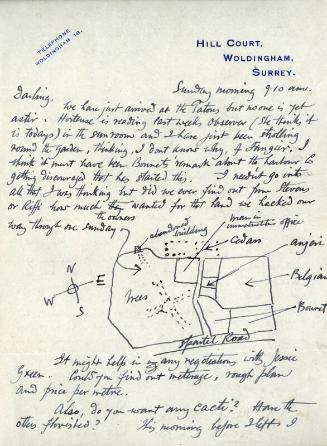 TELEPHONE
WOLDINGHAM 18.
HILL COURT,
WOLDINGHAM,
SURREY.
Sunday morning 9-10 am.
Darling,
We have just arrived at the Tatons but no one is yet
astir. Hortense is reading last weeks Observer (She thinks it
is todays) in the sunroom and I have just been strolling
round the garden, thinking, I don't know why, of Tangier. I
think it must have been Bonnet's remark about the harbour Co
getting discouraged that has started this. I needn't go into
all that I was thinking but did we ever find out from Stevens
or Kiff how much they wanted for that land we hacked our
the owners
way through one Sunday
abandoned
building
man in
immigration office
Cedars
N
W
E
S
trees
Belgian
Bonnet
Road
It might help in any negotiations with Jessie
Green. Could you find out metreage, rough plan
and price per metre.
Also, do you want any cacti? Have the
others flourished? This morning before I left I